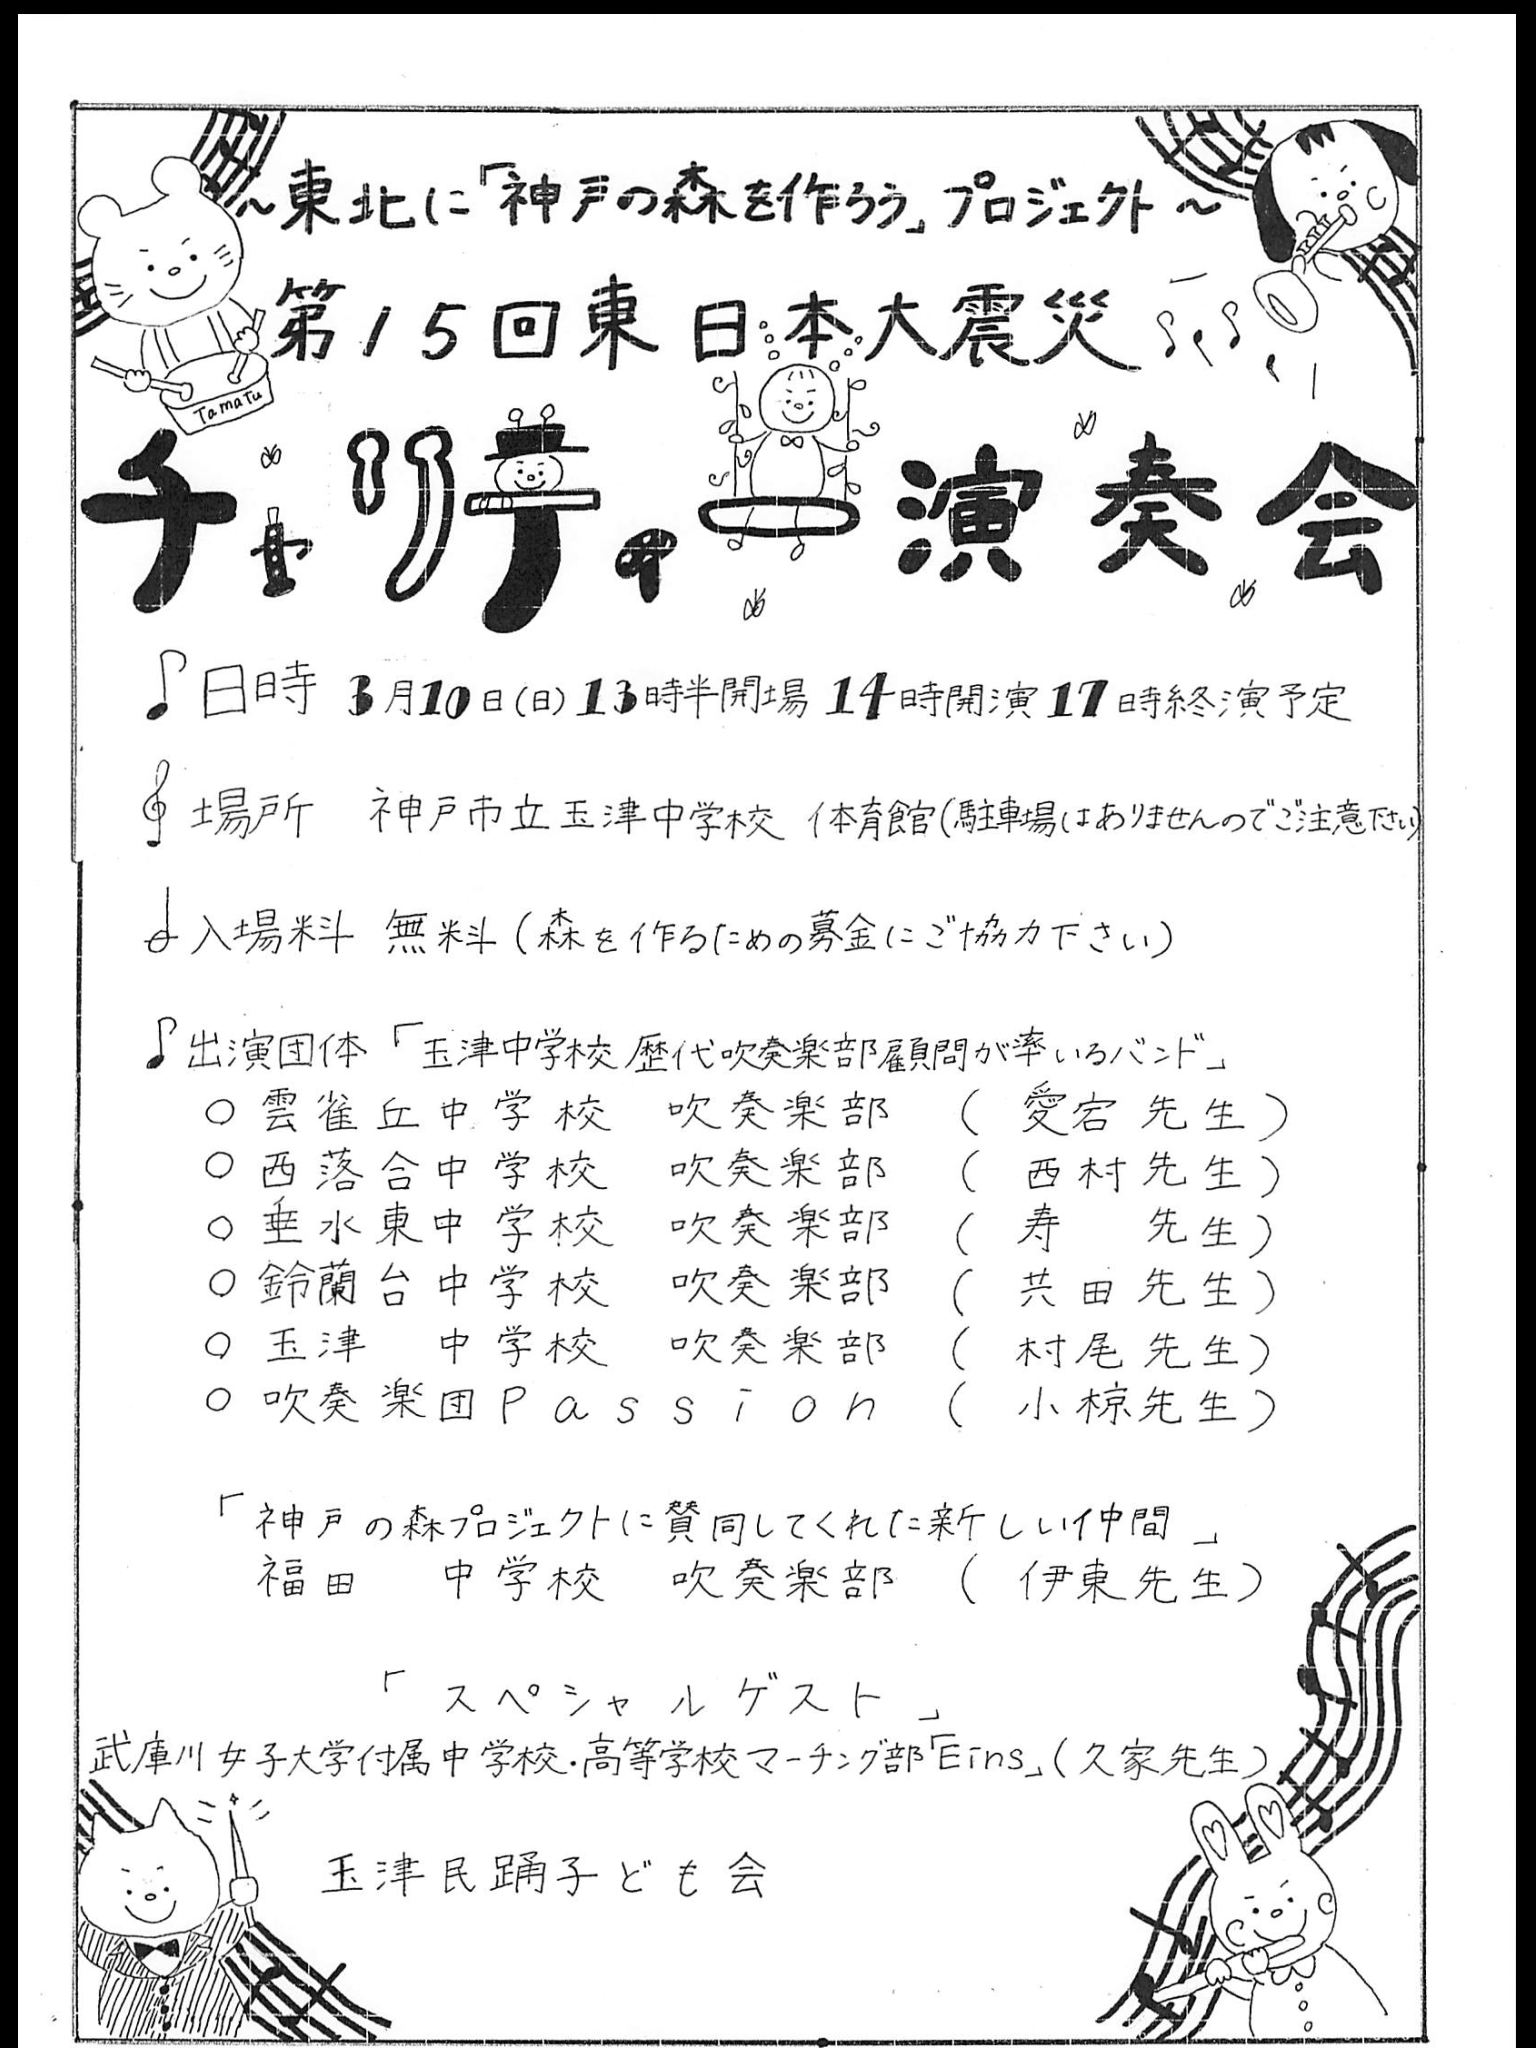 ～東北に「神戸の森を作ろう」プロジェクト～
第15回東日本大震災
チャリティー演奏会
Tamatu
日時 3月10日(日)13時半開場 14時開演17時終演予定
場所 神戸市立玉津中学校 体育館(駐車場はありませんのでご注意下さい)
入場料 無料(森を作るための募金にご協力下さい)
出演団体「玉津中学校歴代吹奏楽部顧問が率いるバンド」
○雲雀丘中学校 吹奏楽部 (愛宕先生)
○西落合中学校 吹奏楽部 (西村先生)
○垂水東中学校 吹奏楽部 (寿 先生)
○鈴蘭台中学校 吹奏楽部 (共田先生)
○玉津 中学校 吹奏楽部 (村尾先生)
○吹奏楽団Passion (小椋先生)
「神戸の森プロジェクトに賛同してくれた新しい仲間」
福田 中学校 吹奏楽部 (伊東先生)
「スペシャルゲスト」
武庫川女子大学付属中学校・高等学校マーチング部「Eins」(久家先生)
玉津民踊子ども会